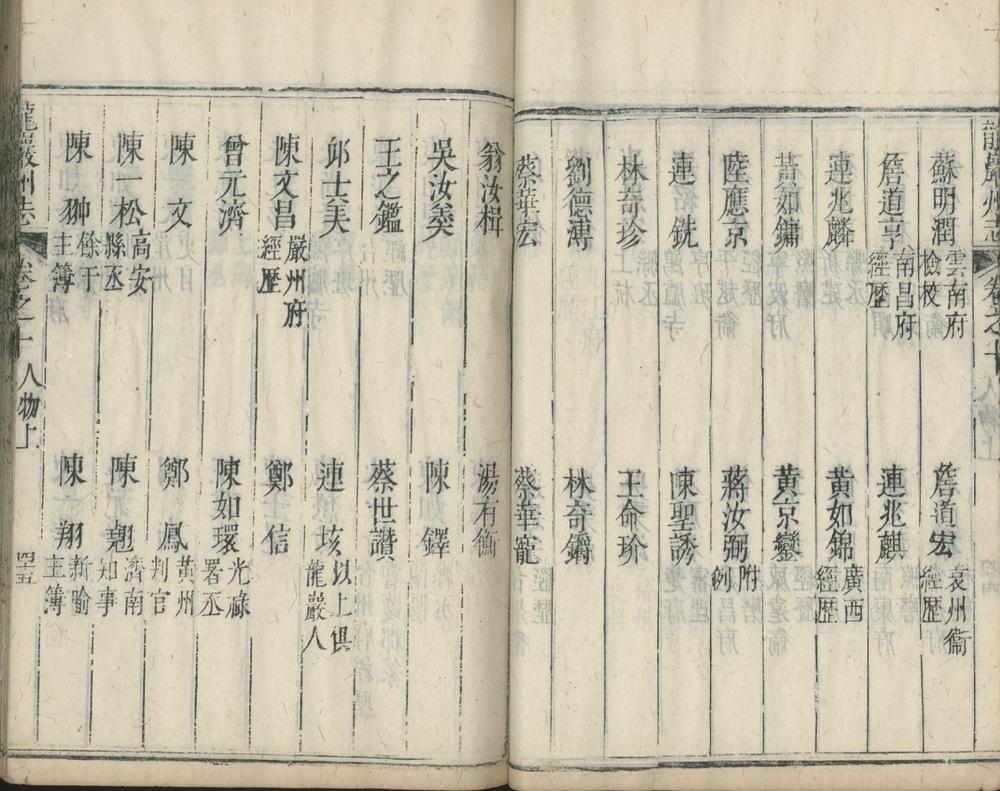 龍巖州志 卷之十 人物上
蘇明潤 雲南府檢校 詹道宏 袁州衞經歷
詹道亨 南昌府經歷 連兆麒
連兆麟 黃如錦 廣西經歷
黃如鏞 黃京鑾
陸應京 蔣汝弼 附例
連銑 陳聖誘
林奇珍 王命玠
劉德溥 林奇鏋
蔡華宏 蔡華寵
翁汝楫 湯有衡
吳汝羙 陳鐸
王之鑑 蔡世讚
邱士美 連垓 以上俱龍巖人
陳文昌 嚴州府經歷 鄭士信
曾元濟 陳如環 光祿署丞
陳文 鄭鳳 黃州判官
陳一松 高安縣丞 陳翹 濟南知事
陳翀 餘于主簿 陳翔 新喻主簿
龍巖州志 卷之十 人物上 四十五